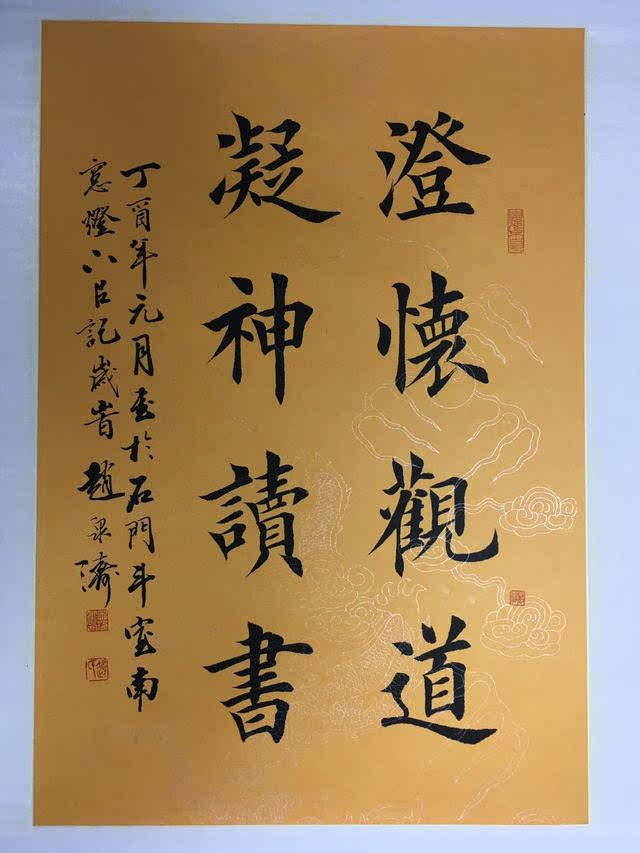 澄懷觀道
凝神讀書
丁酉年元月書於石門斗室南
窓燈下以記歲首趙泉濤